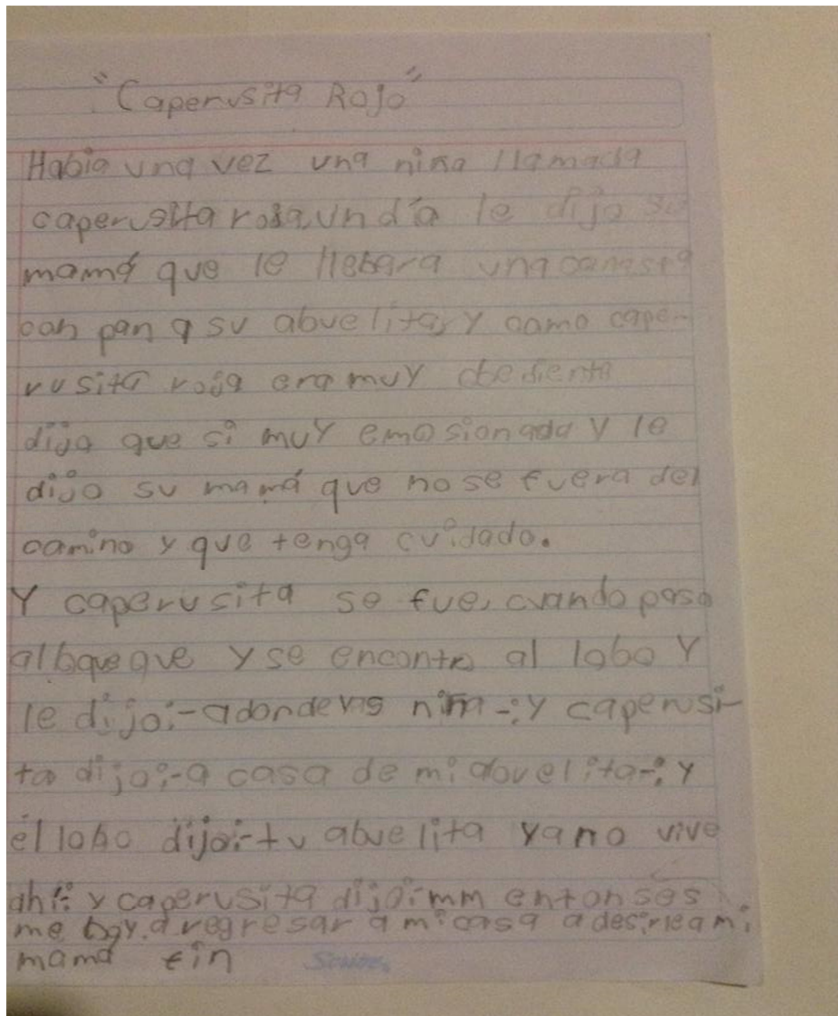 "Caperusita Rojo"
Había una vez una niña llamada
caperusita roja, un día le dijo su
mamá que le llebara una canasta
con pan a su abuelita, y como cape-
rusita roja era muy obediente
dijo que si muy emosionada y le
dijo su mamá que no se fuera del
camino y que tenga cuidado.
Y caperusita se fue, cuando paso
al
y se encontro al lobo y
le dijo:-a donde vas niña-: y caperusi-
ta dijo:-a casa de mi abuelita-: y
el lobo dijo:-tu abuelita ya no vive
ahí-: y caperusita dijo: mm entonses
me boy a regresar a mi casa a desirle a mi
mamá fin